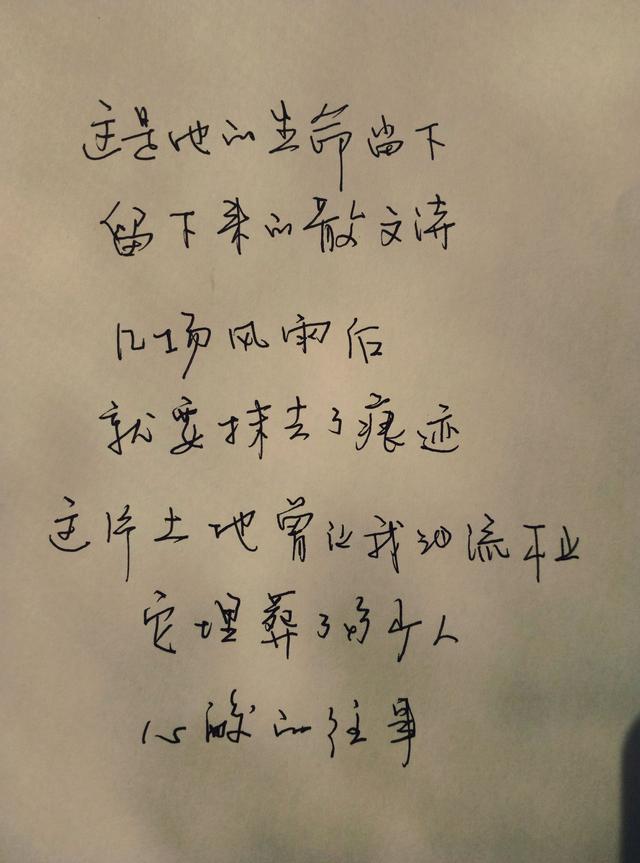 这是他的生命当下
留下来的散文诗
几场风雨后
就要抹去了痕迹
这片土地曾让我泪流不止
它埋葬了多少人
心酸的往事